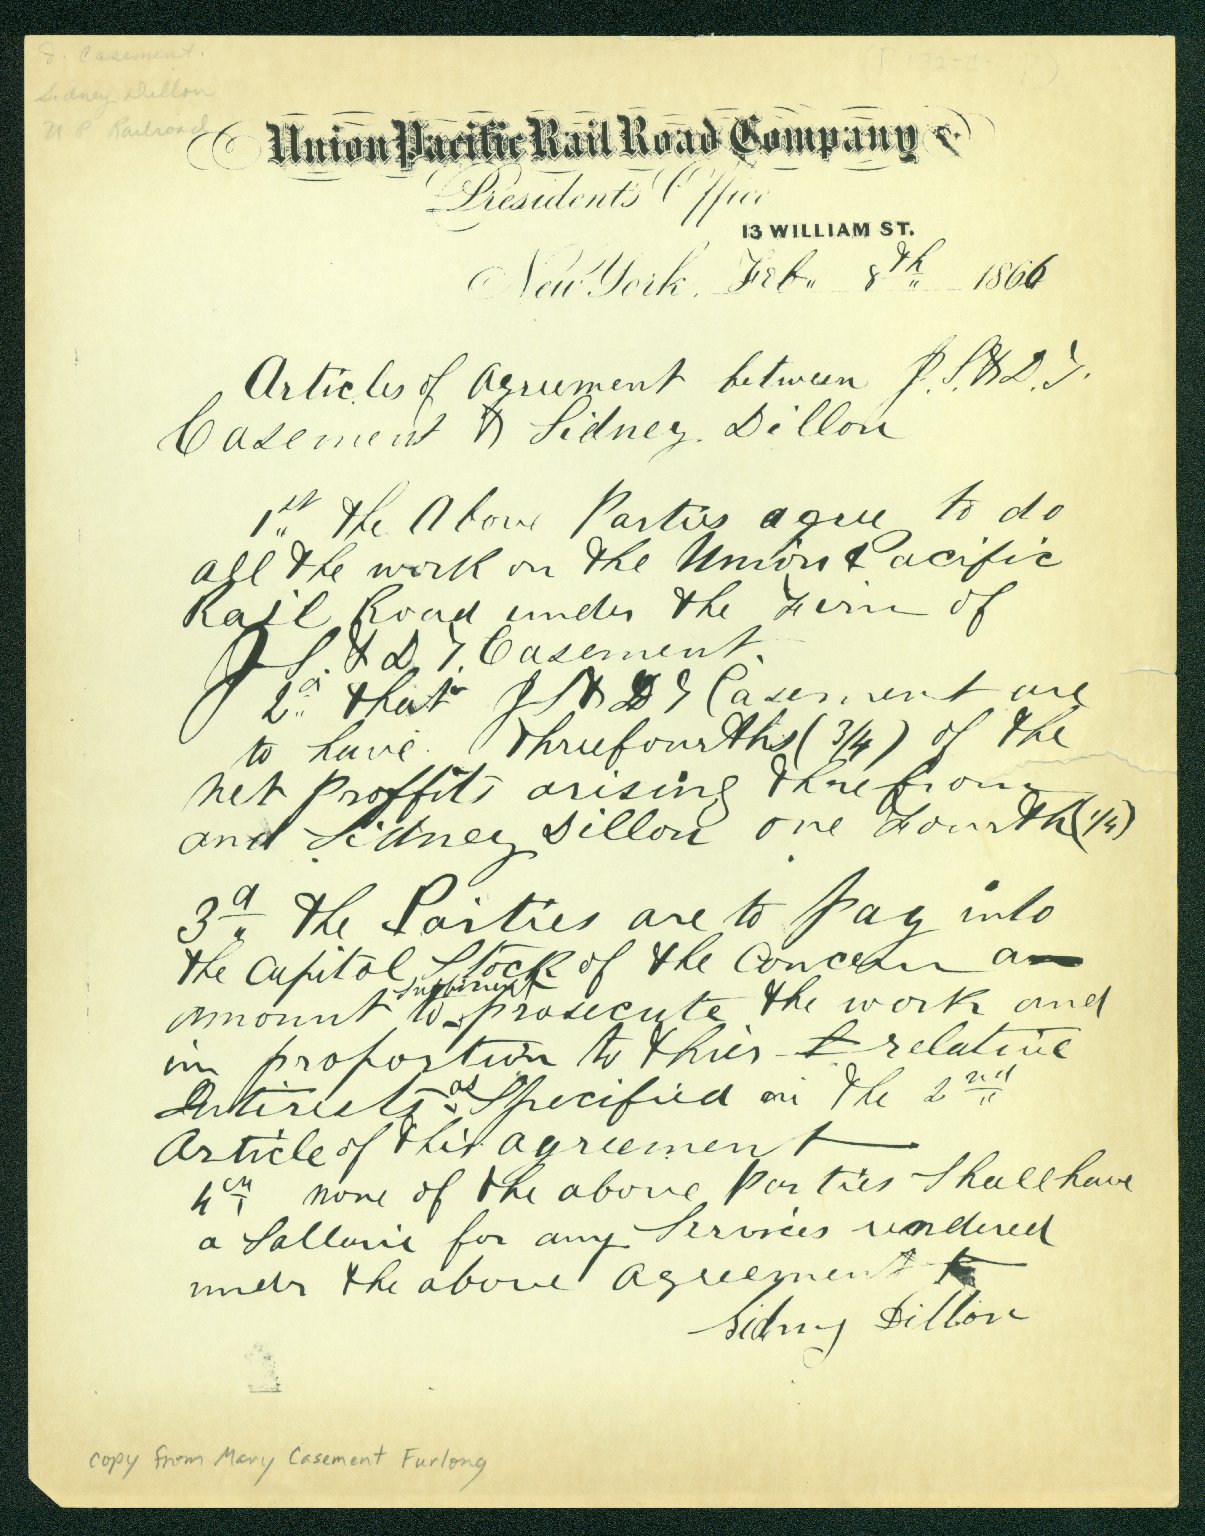 J. Casement.
Sidney Dillon
U. P. Railroad
Union Pacific Rail Road Company
President's Office
13 WILLIAM ST.
New York, Feb. 8th 1866
Articles of Agreement between J. S. & D. T.
Casement & Sidney Dillon
1st the Above Parties agree to do
all the work on the Union Pacific
Rail Road under the Firm of
J. S. & D. T. Casement.
2d that J S & D T Casement are
to have threefourths (3/4) of the
net proffits arising therefrom
and Sidney Dillon one Fourth (1/4)
3d the Parties are to pay into
the capitol Stock of the concern an
amount sufficient to prosecute the work and
in proportion to thier relative
Intirests as Specified in the 2nd
Article of this agreement
4th none of the above parties Shall have
a Sallarie for any Services rendered
under the above agreement
Sidney Dillon
copy from Mary Casement Furlong